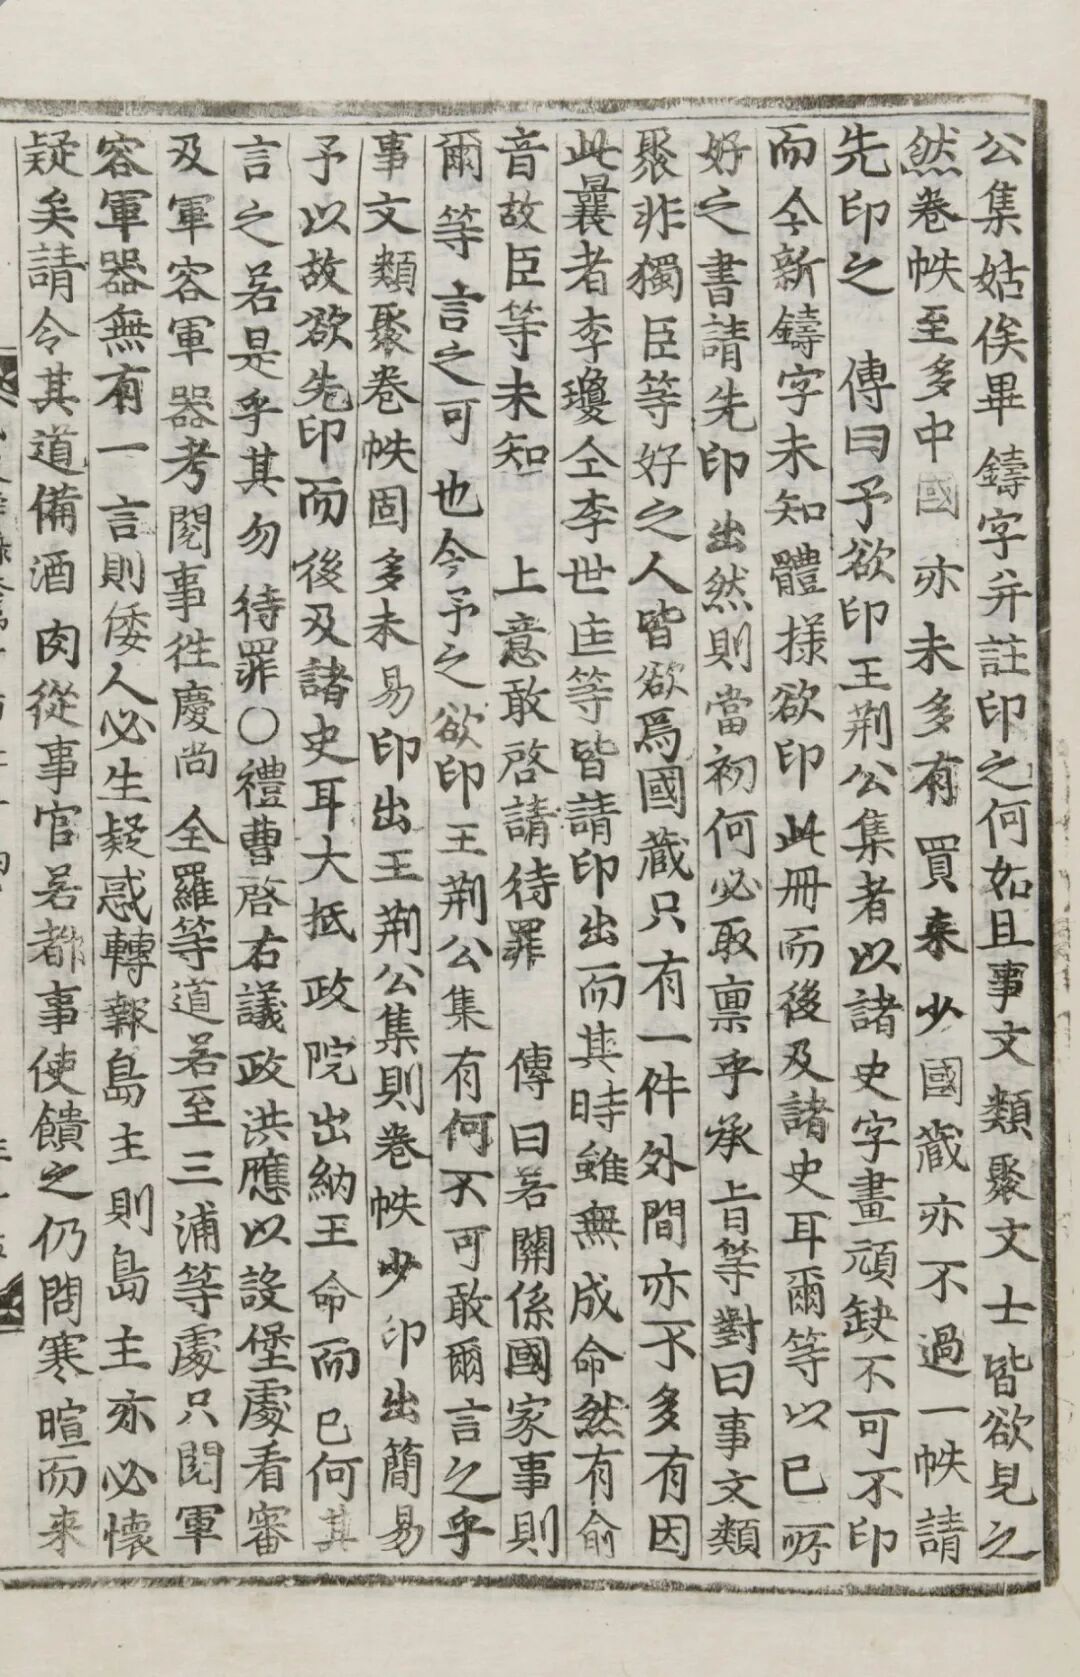 公集姑俟畢鑄字幷註印之何如且事文類聚文士皆欲見之
然卷帙至多中國亦未多有買来少國藏亦不過一帙請
先印之 傳曰予欲印王荊公集者以諸史字畫頑缺不可不印
而今新鑄字未知體㨾欲印此冊而後及諸史耳爾等以已所
好之書請先印出然則當初何必取禀乎承 旨等對曰事文類
聚非獨臣等好之人皆欲爲國藏只有一件外間亦不多有因
此曩者李瓊仝李世匡等皆請印出而其時雖無成命然有俞
音故臣等未知 上意敢啓請待罪 傳曰若關係國家事則
爾等言之可也今予之欲印王荊公集有何不可敢爾言之乎
事文類聚卷帙固多未易印出王荊公集則卷帙少印出簡易
予以故欲先印而後及諸史耳大抵政院出納王命而已何其
言之若是乎其勿待罪○禮曹啓右議政洪應以設堡處看審
及軍容軍器考閱事往慶尚全羅等道若至三浦等處只閱軍
容軍器無有一言則倭人必生疑惑轉報島主則島主亦必懷
疑矣請令其道備酒肉從事官若都事使饋之仍問寒暄而来